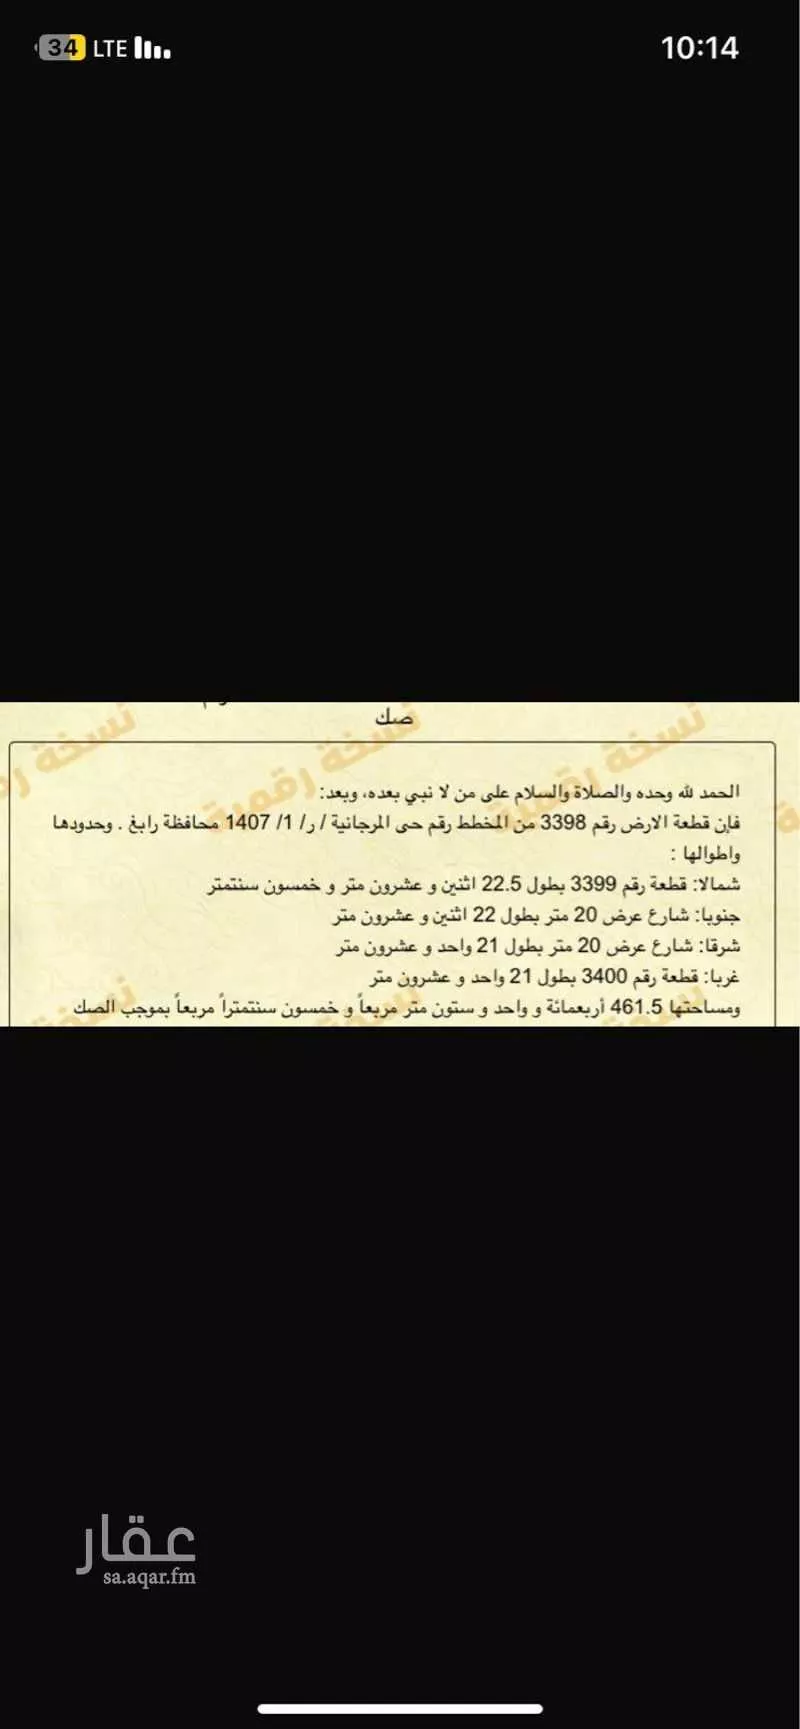 34 LTE
10:14
صك
نسخة رقمية
نسخة رقمية
الحمد لله وحده والصلاة والسلام على من لا نبي بعده، وبعد:
فإن قطعة الارض رقم 3398 من المخطط رقم حى المرجانية / ر/ 1/ 1407 محافظة رابغ . وحدودها
واطوالها :
شمالا: قطعة رقم 3399 بطول 22.5 اثنين و عشرون متر و خمسون سنتمتر
جنوبا: شارع عرض 20 متر بطول 22 اثنين و عشرون متر
شرقا: شارع عرض 20 متر بطول 21 واحد و عشرون متر
غربا: قطعة رقم 3400 بطول 21 واحد و عشرون متر
ومساحتها 461.5 أربعمائة و واحد و ستون متر مربعاً و خمسون سنتمتراً مربعاً بموجب الصك
عقار
sa.aqar.fm